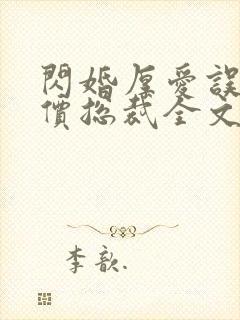 閃婚厚愛誤
價總裁全文
李歆.